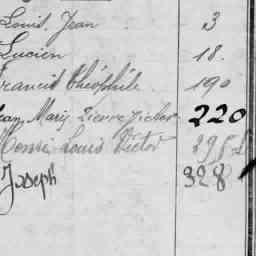 Louis Jean 3
Lucien 18.
Francis Théophile. 190
Jean Marie Pierre Victor 220
Henri Louis Victor
Joseph 328